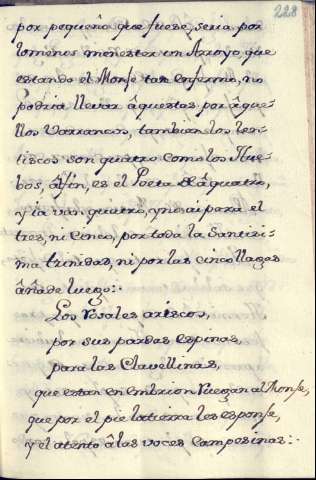 228
por pequeño que fuese, seria por
lomenos menester un Arroyo, que
estando el Monse tan enfermo, no
podria llevar âquestas por âque-
llos Varrancos, tambien los len-
tiscos son quatro como los Nue-
bos, âlfin, es el Poeta de âquatro,
y ia van quatro, y no ai para el
tres, ni Cinco, por toda la Santisi-
ma trinidad, ni por las cinco llagas
âñade luego:.
Los Rosales ariscos,
por sus pardas espinas,
para las Clavellinas,
que estan en Embrion Ruegan al Monse,
que por el pie la tierra les esponse,
y el atento â las voces Campesinas:.